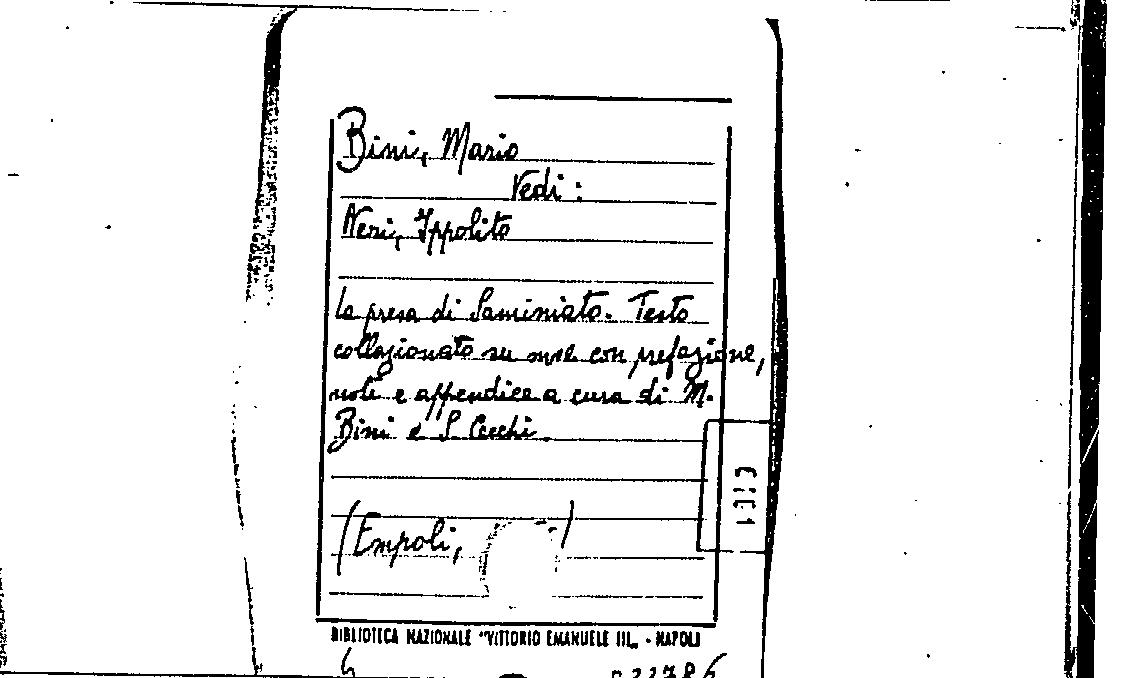 Bini, Mario
Vedi:
Neri, Ippolito
La presa di Saminiato. Testo
collazionato su mss con prefazione,
note e appendice a cura di M.
Bini e S. Cecchi.
(Empoli, )
BIBLIOTECA NAZIONALE "VITTORIO EMANUELE III„ - NAPOLI